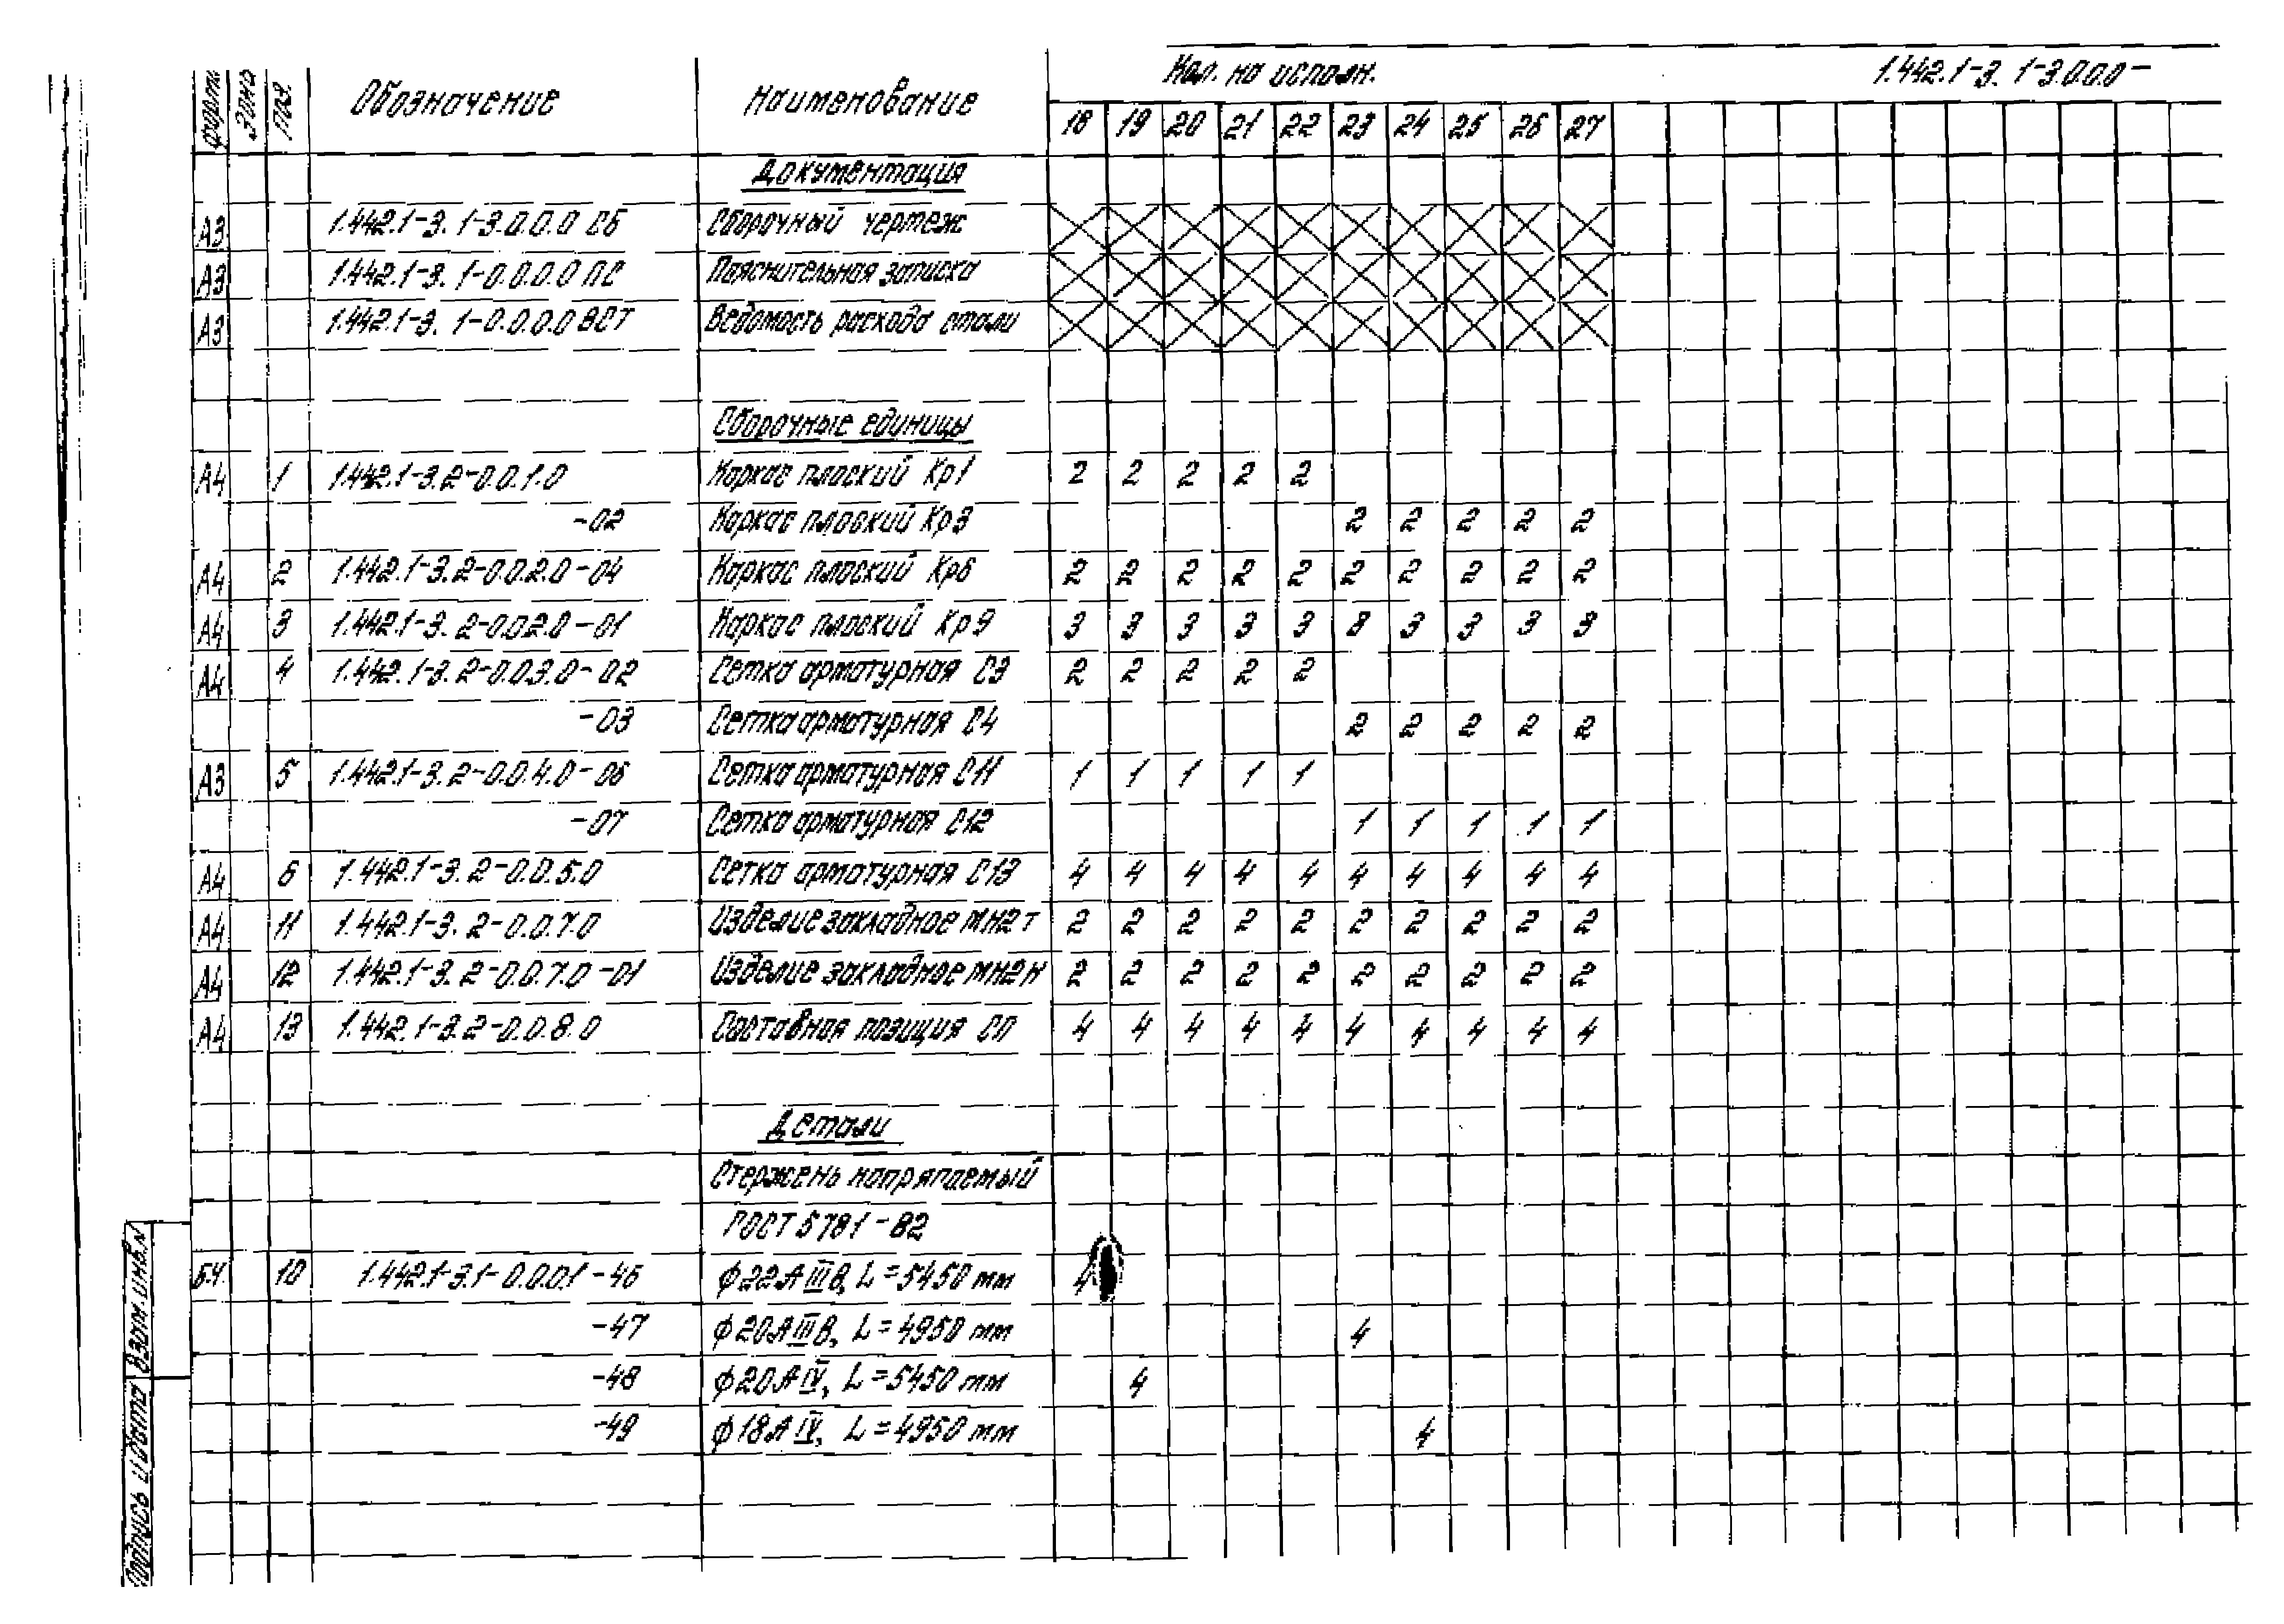 Кол. на исполн. 1.442.1-3. 1-3.0.0.0-
Форм. Зона Поз. Обозначение Наименование 18 19 20 21 22 23 24 25 26 27
Документация
А3 1.442.1-3. 1-3.0.0.0 СБ Сборочный чертеж
А3 1.442.1-3. 1-0.0.0.0 ПС Пояснительная записка
А3 1.442.1-3. 1-0.0.0.0 ВСТ Ведомость расхода стали
Сборочные единицы
А4 1 1.442.1-3.2-0.0.1.0 Каркас плоский Кр1 2 2 2 2 2
-02 Каркас плоский Кр3 2 2 2 2 2
А4 2 1.442.1-3.2-0.0.2.0-04 Каркас плоский Кр6 2 2 2 2 2 2 2 2 2 2
А4 3 1.442.1-3. 2-0.0.2.0-01 Каркас плоский Кр9 3 3 3 3 3 3 3 3 3 3
А4 4 1.442.1-3.2-0.0.3.0-02 Сетка арматурная С3 2 2 2 2 2
-03 Сетка арматурная С4 2 2 2 2 2
А3 5 1.442.1-3.2-0.0.4.0-06 Сетка арматурная С11 1 1 1 1 1
-07 Сетка арматурная С12 1 1 1 1 1
А4 6 1.442.1-3.2-0.0.5.0 Сетка арматурная С13 4 4 4 4 4 4 4 4 4 4
А4 11 1.442.1-3. 2-0.0.7.0 Изделие закладное МН2т 2 2 2 2 2 2 2 2 2 2
А4 12 1.442.1-3. 2-0.0.7.0-01 Изделие закладное МН2н 2 2 2 2 2 2 2 2 2 2
А4 13 1.442.1-3.2-0.0.8.0 Составная позиция СП 4 4 4 4 4 4 4 4 4 4
Детали
Стержень напрягаемый
ГОСТ 5781-82
Б.Ч. 10 1.442.1-3.1-0.0.0.1-46 ф22АIIIв, L=5450 мм 4
-47 ф20АIIIв, L=4950 мм 4
-48 ф20АIV, L=5450 мм 4
-49 ф18АIV, L=4950 мм 4
Взам.инв.N
Подпись и дата